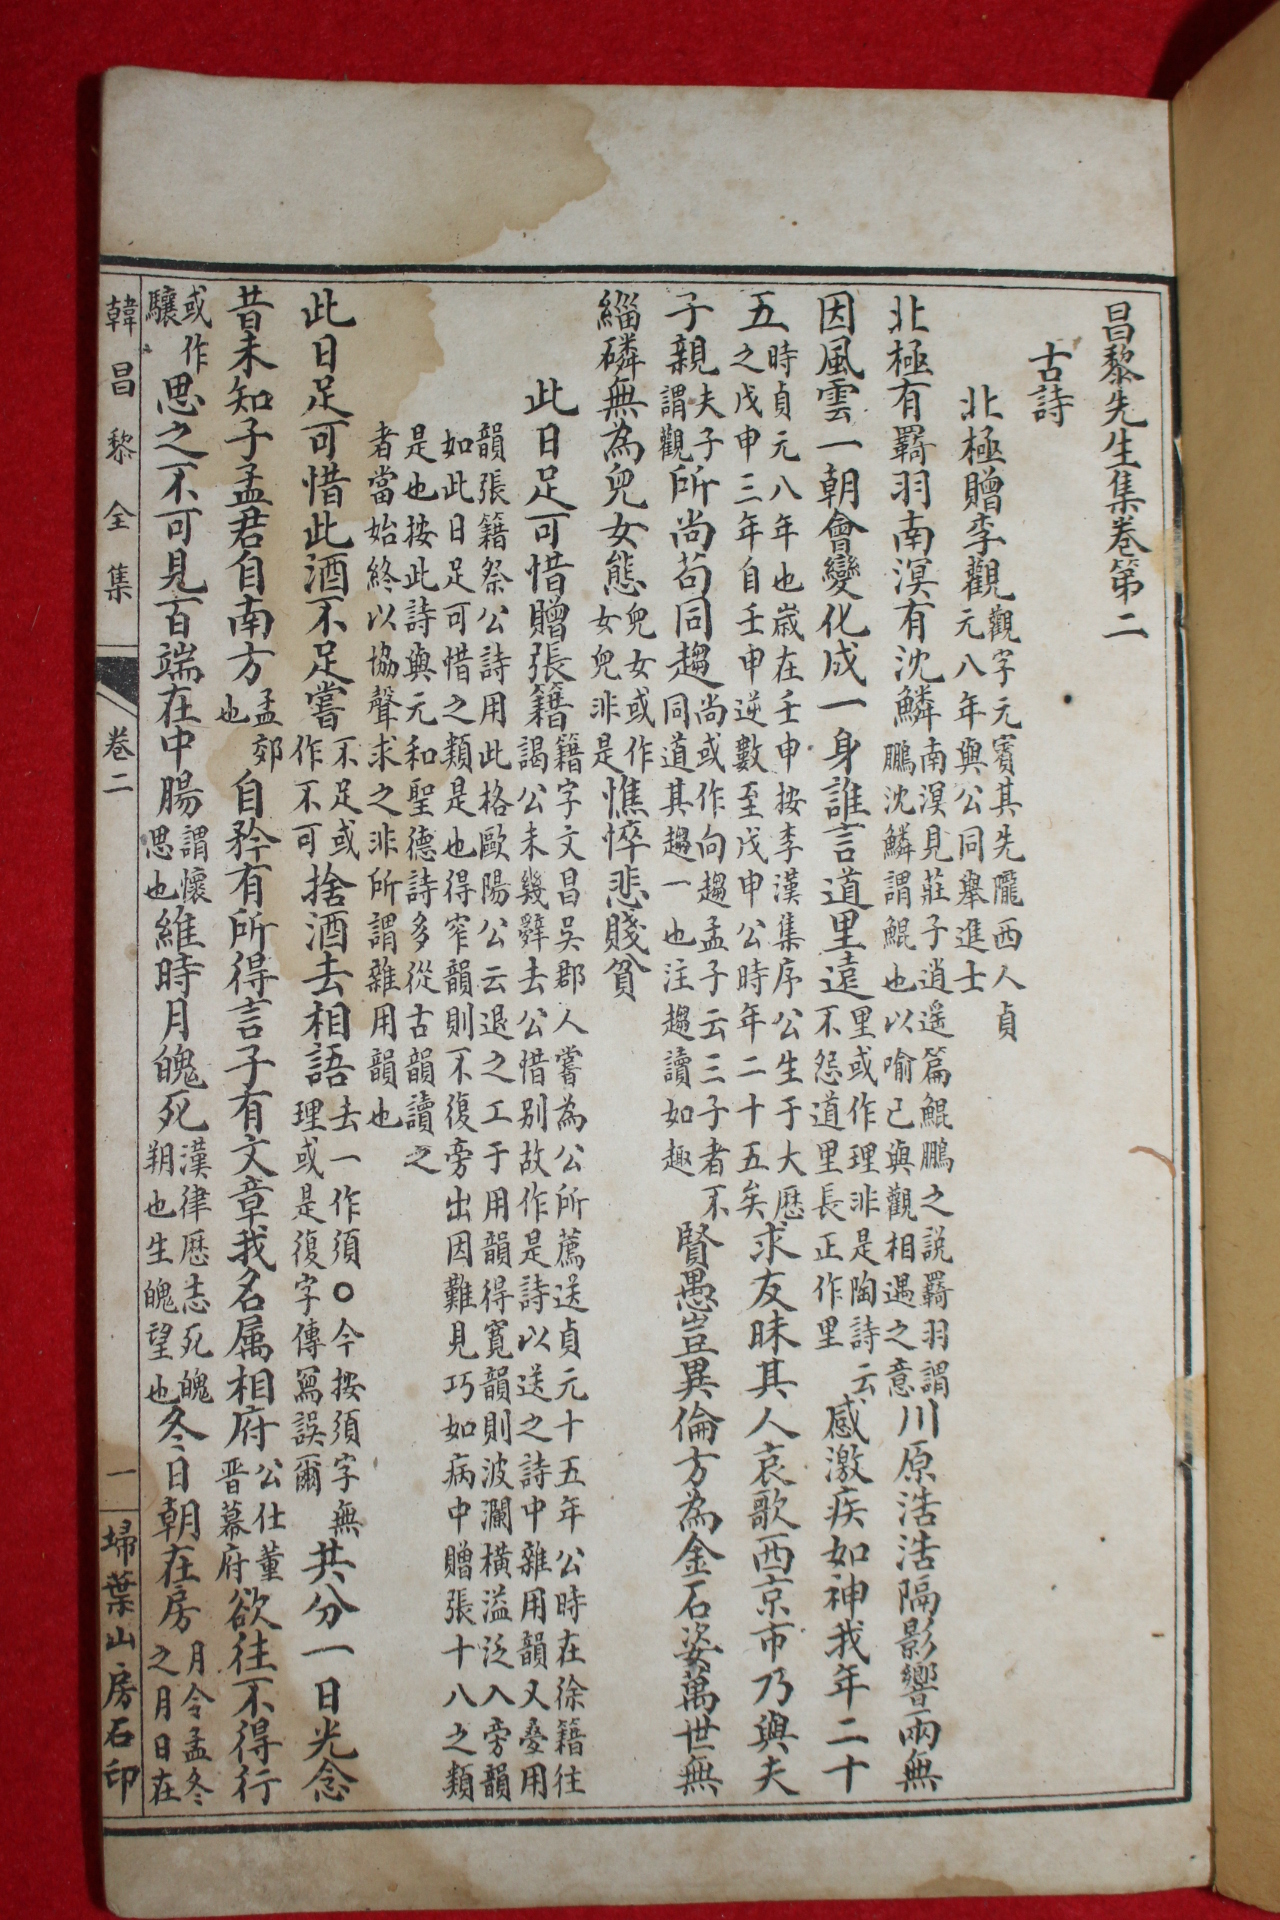 昌黎先生集卷第二
古詩
北極贈李觀觀字元賓其先隴西人貞元八年與公同舉進士
北極有羇羽南溟有沈鱗南溟見莊子逍遙篇鯤鵬之說羇羽謂鵬沈鱗謂鯤也以喻己與觀相遇之意川原浩浩隔影響兩無
因風雲一朝會變化成一身誰言道里遠里或作理非是陶詩云不怨道里長正作里感激疾如神我年二十
五時貞元八年也歲在壬申按李漢集序公生于大厯之戊申三年自壬申逆數至戊申公時年二十五矣求友昧其人哀歌西京市乃與夫
子親夫子謂觀所尚苟同趨尚或作向趨孟子云三子者不同道其趨一也注趨讀如趣賢愚豈異倫方為金石姿萬世無
緇磷無為兒女態兒女或作女兒非是憔悴悲賤貧
此日足可惜贈張籍籍字文昌吳郡人嘗為公所薦送貞元十五年公時在徐籍往謁公未幾辭去公惜别故作是詩以送之詩中雜用韻又疊用
韻張籍祭公詩用此格歐陽公云退之工于用韻得寬韻則波瀾橫溢泛入旁韻
如此日足可惜之類是也得窄韻則不復旁出因難見巧如病中贈張十八之類
是也按此詩與元和聖德詩多從古韻讀之
者當始終以協聲求之非所謂雜用韻也
此日足可惜此酒不足嘗不足或作不可捨酒去相語去一作須○今按須字無理或是復字傳寫誤爾共分一日光念
昔未知子孟君自南方孟郊也自矜有所得言子有文章我名属相府公仕董晋幕府欲往不得行
或作驤思之不可見百端在中腸謂懷思也維時月魄死漢律厯志死魄朔也生魄望也冬日朝在房月令孟冬之月日在
韓昌黎全集 卷二 一 埽葉山房石印